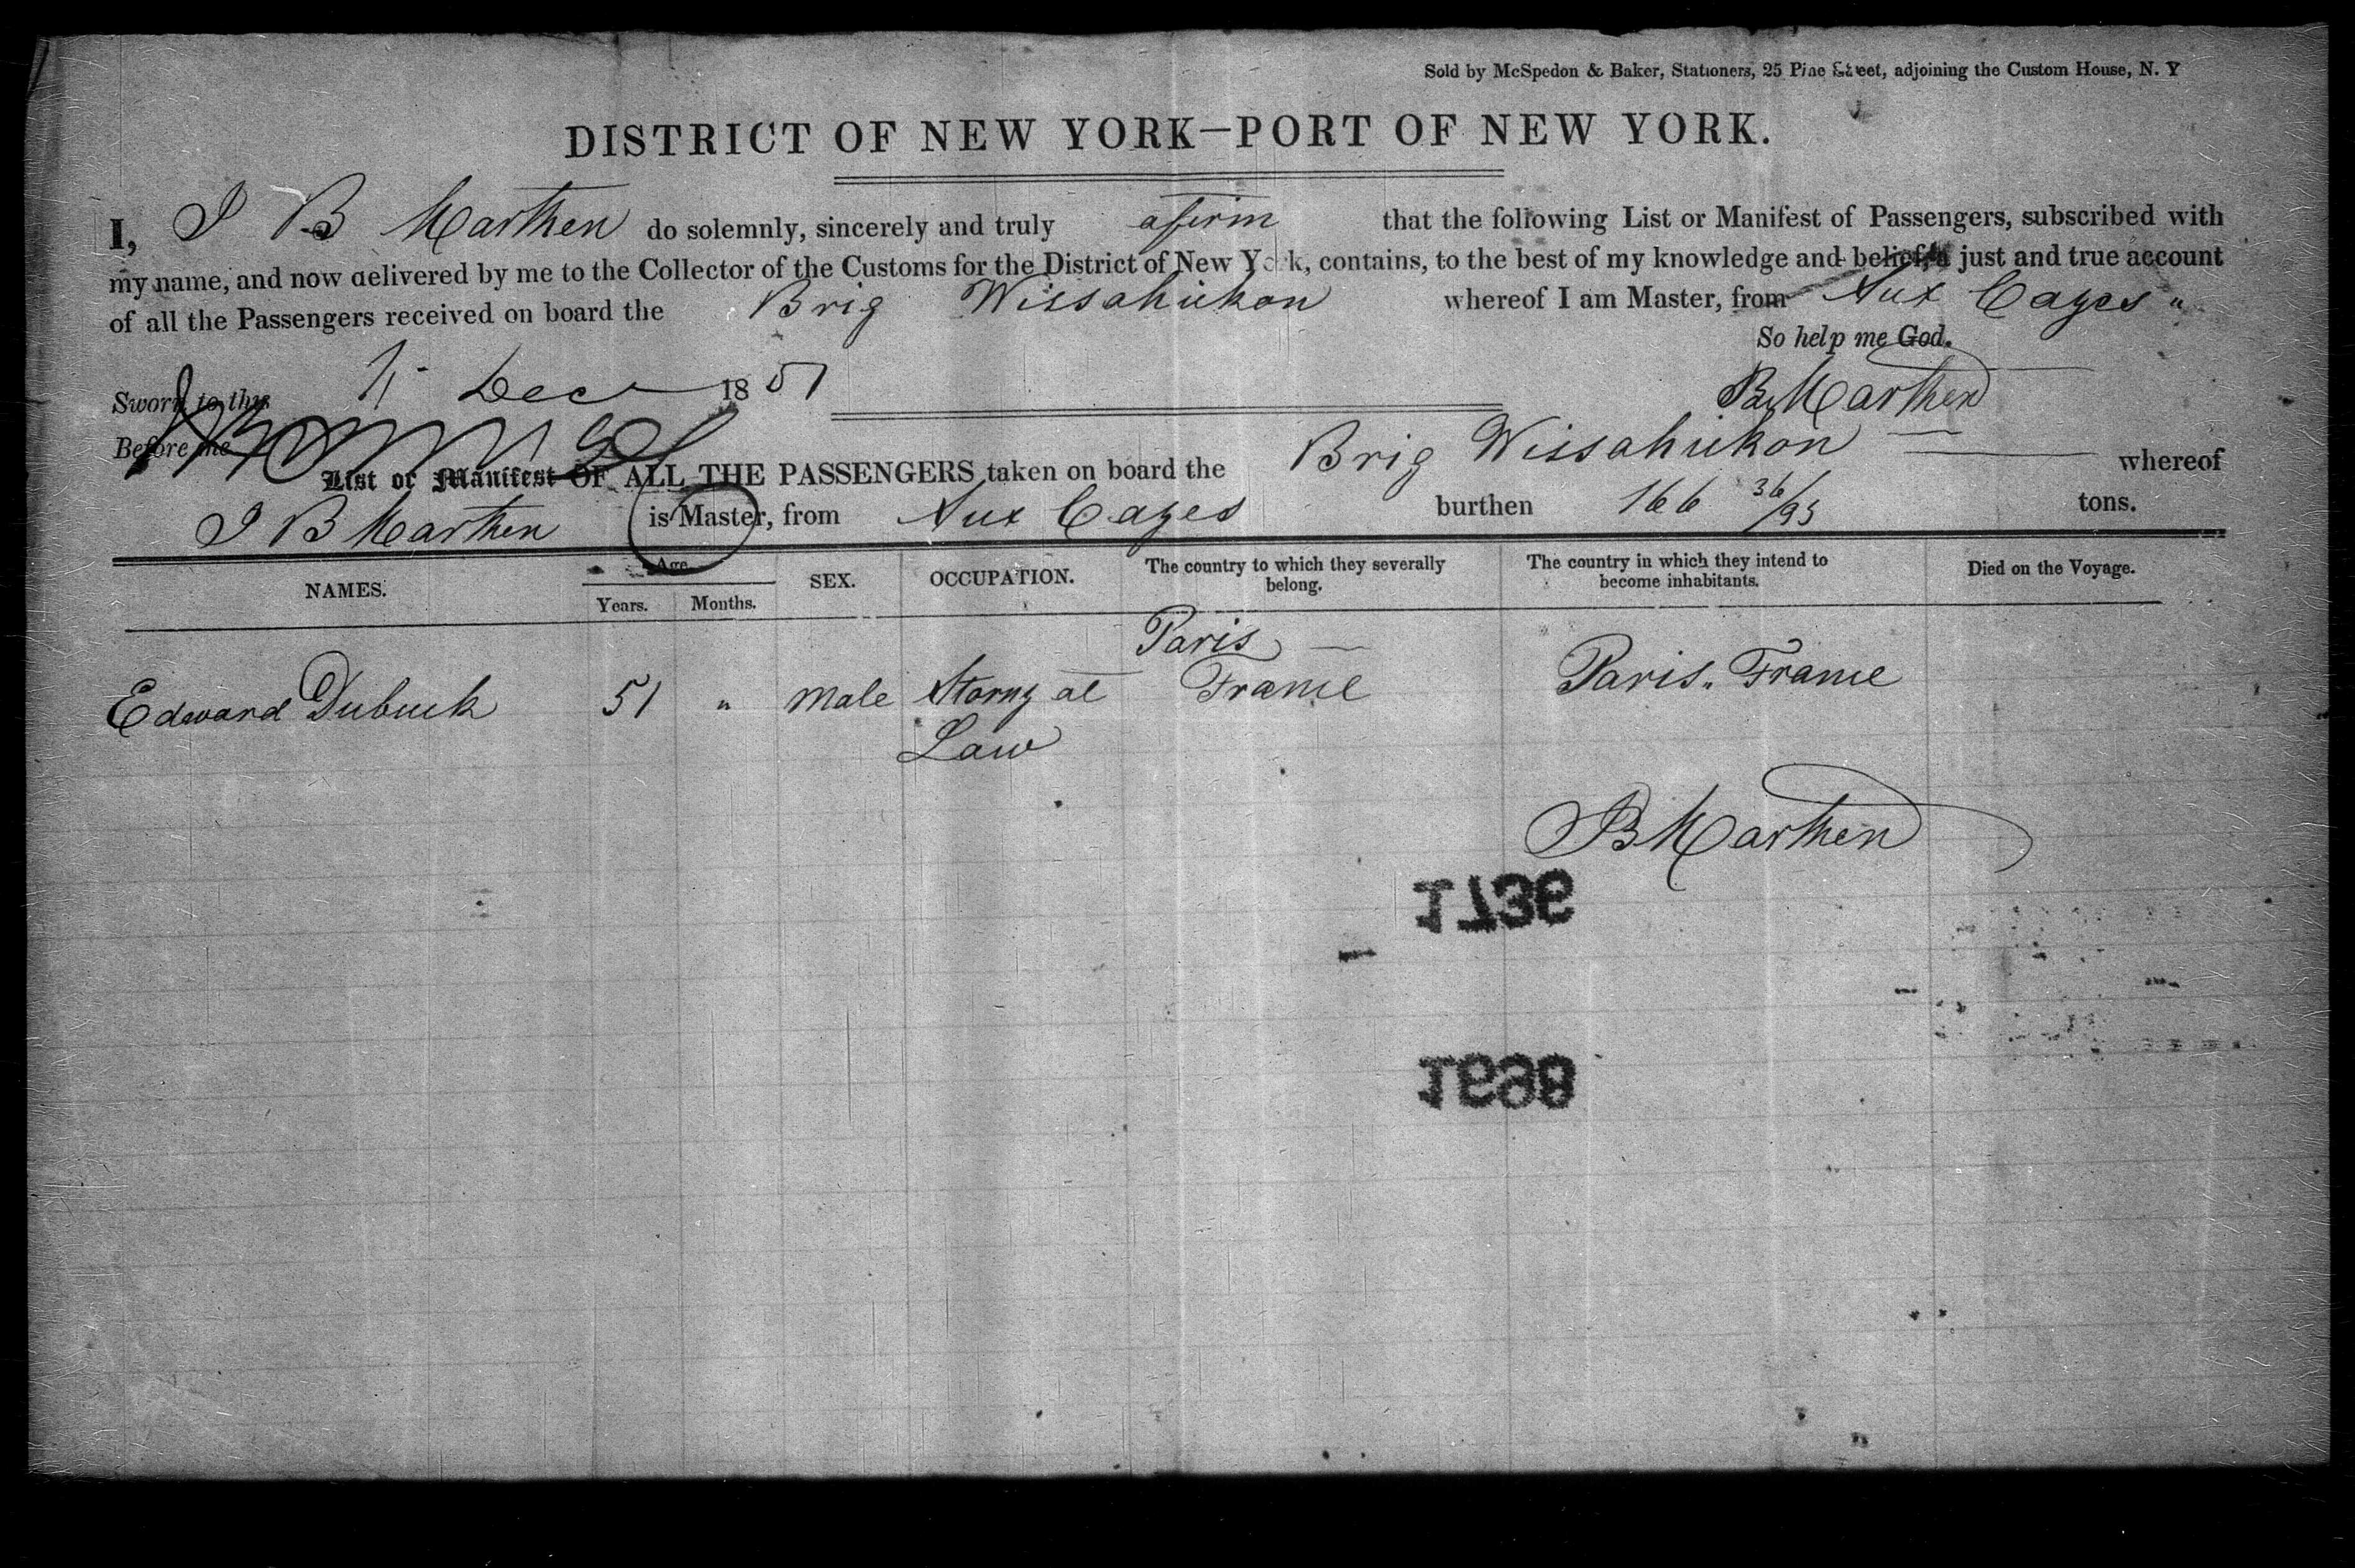 Sold by McSpedon & Baker, Stationers, 25 Pine Street, adjoining the Custom House, N. Y
DISTRICT OF NEW YORK—PORT OF NEW YORK.
I, J B Marthen do solemnly, sincerely and truly afirm that the following List or Manifest of Passengers, subscribed with
my name, and now delivered by me to the Collector of the Customs for the District of New York, contains, to the best of my knowledge and belief, a just and true account
of all the Passengers received on board the Brig Wissahickon whereof I am Master, from Aux Cayes "
So help me God.
Sworn to this Dec 1851
B Marthen
Before me
List or Manifest OF ALL THE PASSENGERS taken on board the Brig Wissahickon whereof
J B Marthen is Master, from Aux Cayes burthen 166 36/95 tons.
NAMES. Age SEX. OCCUPATION. The country to which they severally belong. The country in which they intend to become inhabitants. Died on the Voyage.
Years. Months.
Paris
Edward Dubuck 51 " Male Atorny at France Paris. France
Law
B Marthen
1736
1698